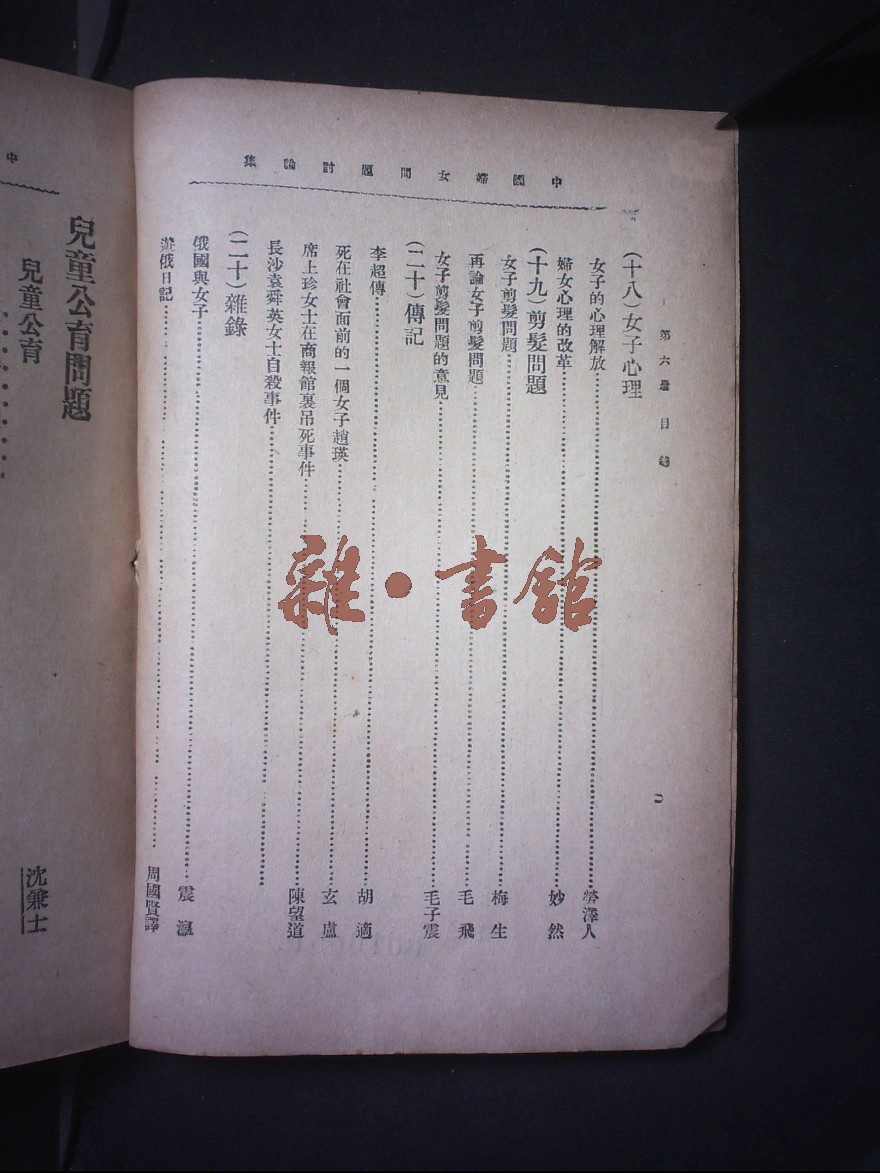 中國婦女問題討論集
第六册目錄
（十八）女子心理
女子的心理解放 勞澤人
婦女心理的改革 妙然
（十九）剪髮問題
女子剪髮問題 梅生
再論女子剪髮問題 毛飛
女子剪髮問題的意見 毛子震
（二十）傳記
李超傳 胡適
死在社會面前的一個女子趙瑛 玄廬
席上珍女士在商報館裏吊死事件 陳望道
長沙袁舜英女士自殺事件
（二十）雜錄
俄國與女子 震瀛
遊俄日記 周國賢譯
中
兒童公育問題
兒童公育
沈兼士
雜・書館